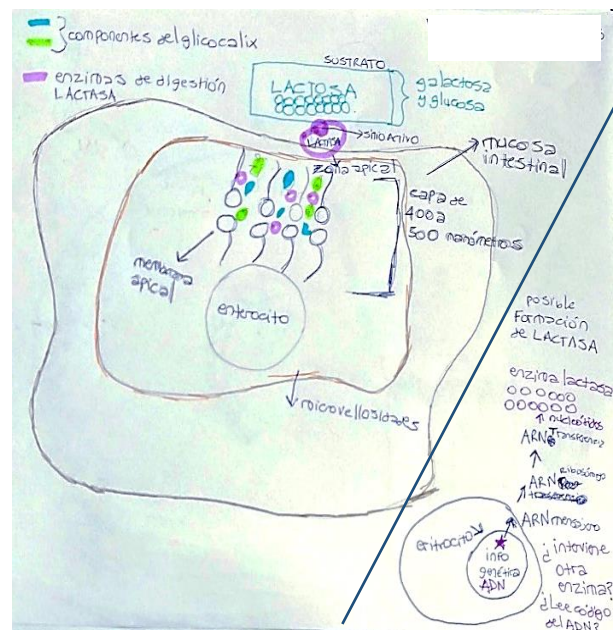 componentes del glicocalix
enzimas de digestión
LACTASA
SUSTRATO
LACTOSA
galactosa
y glucosa
LACTASA
sitio activo
zona apical
mucosa
intestinal
capa de
400 a
500 nanómetros
membrana
apical
enterocito
microvellosidades
posible
Formación
de LACTASA
enzima lactasa
nucleótidos
ARN Transferencia
ARN ribosómico
ARN mensajero
eritrocito
info
genética
ADN
¿interviene
otra
enzima?
¿Lee código
del ADN?